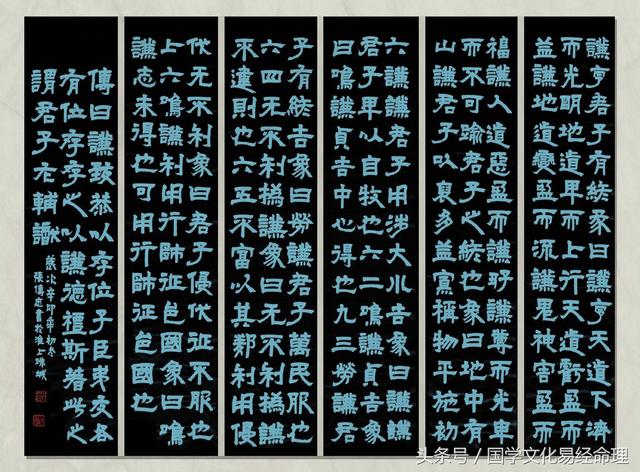 謙亨君子有終彖曰謙亨天道下濟
而光明地道卑而上行天道虧盈而
益謙地道變盈而流謙鬼神害盈而
福謙人道惡盈而好謙謙尊而光卑
而不可踰君子之終也象曰地中有
山謙君子以裒多益寡稱物平施初
六謙謙君子用涉大川吉象曰謙謙
君子卑以自牧也六二鳴謙貞吉象
曰鳴謙貞吉中心得也九三勞謙君
子有終吉象曰勞謙君子萬民服也
六四无不利撝謙象曰无不利撝謙
不違則也六五不富以其鄰利用侵
伐无不利象曰君子侵伐征不服也
上六鳴謙利用行師征邑國象曰鳴
謙志未得也可用行師征邑國也
傳曰謙致恭以存位子臣夷交各
有位存存之以謙德禮斯著此之
謂君子
歲次辛卯年初冬
書於淮上
头条号 / 国学文化易经命理